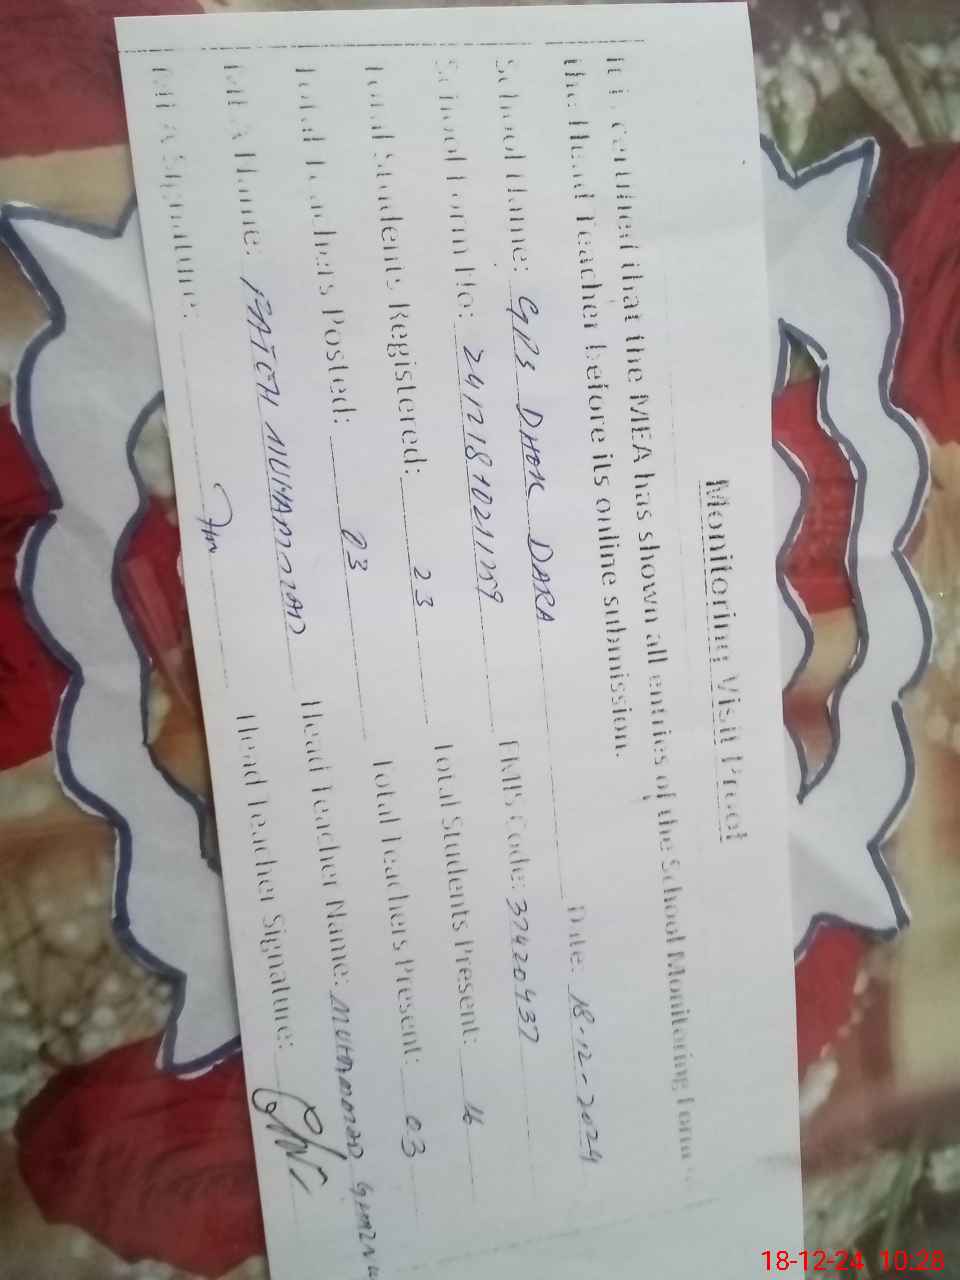 Monitoring Visit Proof
It is certified that the MEA has shown all entries of the School Monitoring Form
the Head Teacher before its online submission.
School Name: GPS DHOK DARA Date: 18-12-2024
School Form No: EMIS Code: 37420437
Total Students Registered: 23 Total Students Present: 16
Total Teachers Posted: 03 Total Teachers Present: 03
MEA Name: FATEH MUHAMMAD Head Teacher Name: MUHAMMAD
MEA Signature: Head Teacher Signature:
18-12-24 10:28